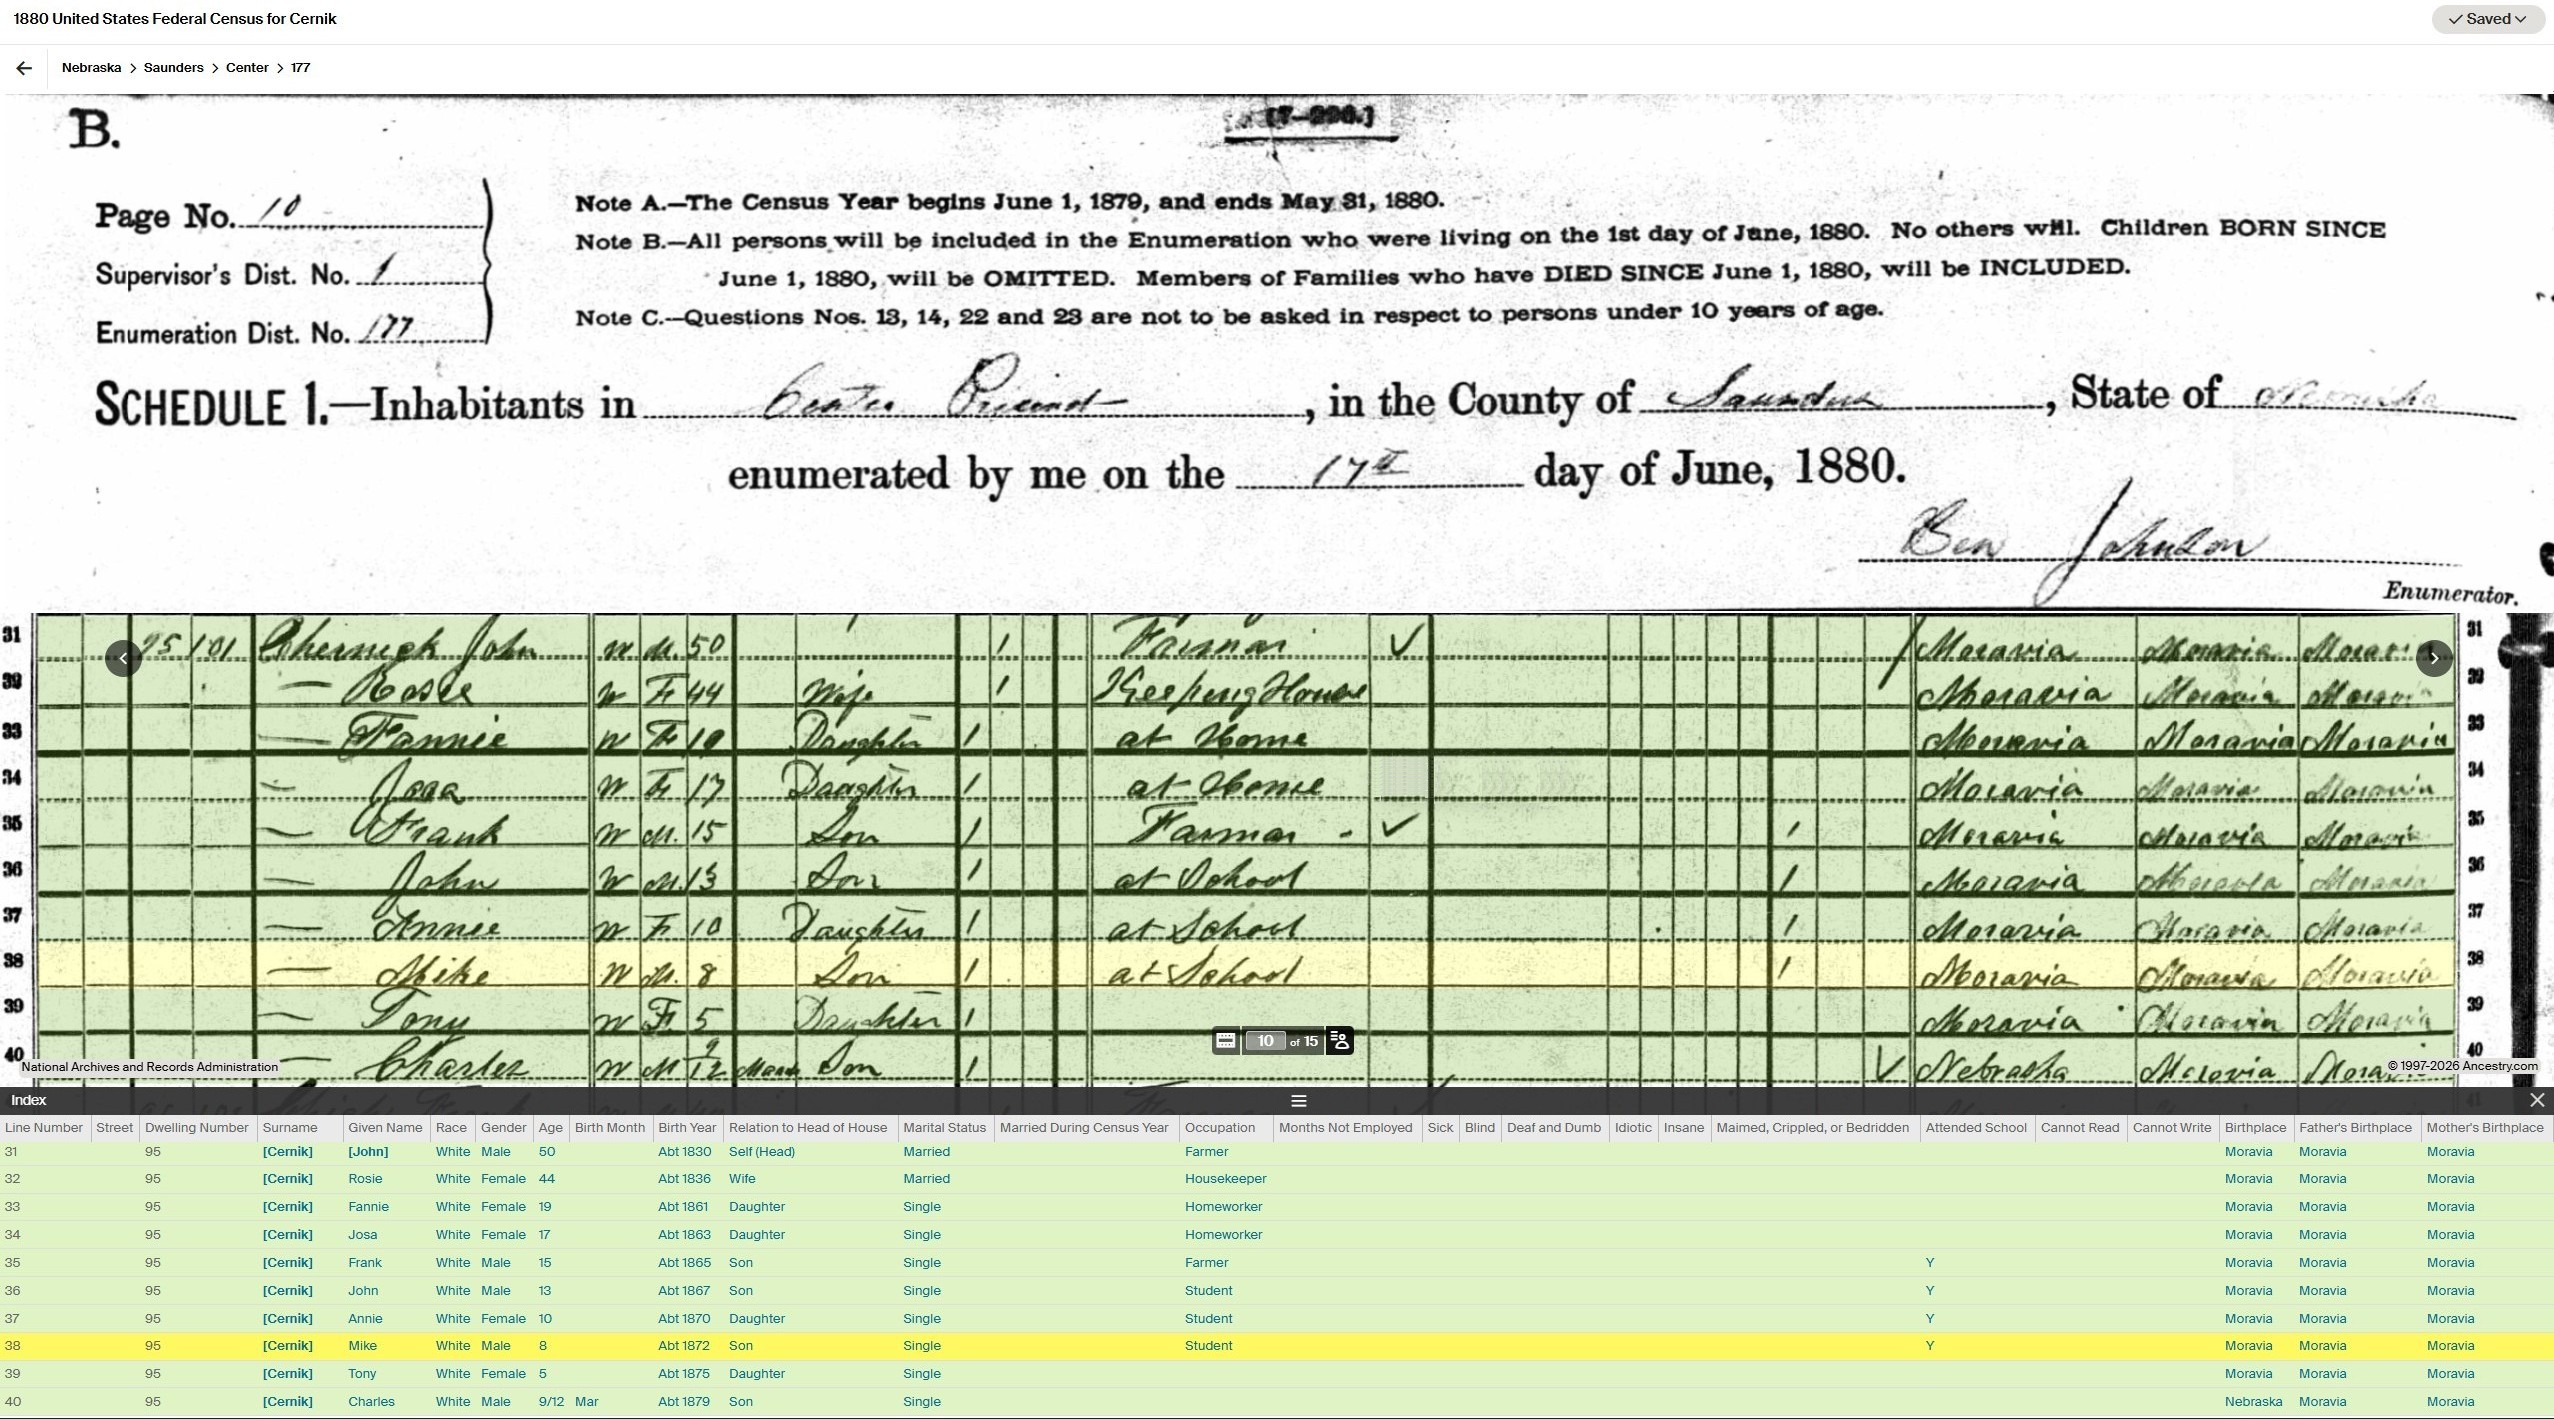 1880 United States Federal Census for Cernik
Saved
Nebraska > Saunders > Center > 177
B.
[7-296.]
Page No. 10
Supervisor's Dist. No. 1
Enumeration Dist. No. 177
Note A.—The Census Year begins June 1, 1879, and ends May 31, 1880.
Note B.—All persons will be included in the Enumeration who were living on the 1st day of June, 1880. No others will. Children BORN SINCE
June 1, 1880, will be OMITTED. Members of Families who have DIED SINCE June 1, 1880, will be INCLUDED.
Note C.—Questions Nos. 13, 14, 22 and 23 are not to be asked in respect to persons under 10 years of age.
SCHEDULE 1.—Inhabitants in Center Precinct, in the County of Saunders, State of Nebraska
enumerated by me on the 17th day of June, 1880.
Ben Johnson
Enumerator.
31 95 101 Chernick John W M. 50 1 Farmer Moravia Moravia Moravia 31
32 — Rosie W F 44 Wife 1 Keeping House Moravia Moravia Moravia 32
33 — Fannie W F 19 Daughter 1 at Home Moravia Moravia Moravia 33
34 — Josa W F 17 Daughter 1 at Home Moravia Moravia Moravia 34
35 — Frank W M. 15 Son 1 Farmer 1 Moravia Moravia Moravia 35
36 — John W M. 13 Son 1 at School 1 Moravia Moravia Moravia 36
37 — Annie W F 10 Daughter 1 at School 1 Moravia Moravia Moravia 37
38 — Mike W M. 8 Son 1 at School 1 Moravia Moravia Moravia 38
39 — Tony W F 5 Daughter 1 Moravia Moravia Moravia 39
40 — Charles W M 9/12 March Son 1 Nebraska Moravia Moravia 40
10 of 15
National Archives and Records Administration
© 1997-2026 Ancestry.com
Index
Line Number Street Dwelling Number Surname Given Name Race Gender Age Birth Month Birth Year Relation to Head of House Marital Status Married During Census Year Occupation Months Not Employed Sick Blind Deaf and Dumb Idiotic Insane Maimed, Crippled, or Bedridden Attended School Cannot Read Cannot Write Birthplace Father's Birthplace Mother's Birthplace
31 95 [Cernik] [John] White Male 50 Abt 1830 Self (Head) Married Farmer Moravia Moravia Moravia
32 95 [Cernik] Rosie White Female 44 Abt 1836 Wife Married Housekeeper Moravia Moravia Moravia
33 95 [Cernik] Fannie White Female 19 Abt 1861 Daughter Single Homeworker Moravia Moravia Moravia
34 95 [Cernik] Josa White Female 17 Abt 1863 Daughter Single Homeworker Moravia Moravia Moravia
35 95 [Cernik] Frank White Male 15 Abt 1865 Son Single Farmer Y Moravia Moravia Moravia
36 95 [Cernik] John White Male 13 Abt 1867 Son Single Student Y Moravia Moravia Moravia
37 95 [Cernik] Annie White Female 10 Abt 1870 Daughter Single Student Y Moravia Moravia Moravia
38 95 [Cernik] Mike White Male 8 Abt 1872 Son Single Student Y Moravia Moravia Moravia
39 95 [Cernik] Tony White Female 5 Abt 1875 Daughter Single Moravia Moravia Moravia
40 95 [Cernik] Charles White Male 9/12 Mar Abt 1879 Son Single Nebraska Moravia Moravia